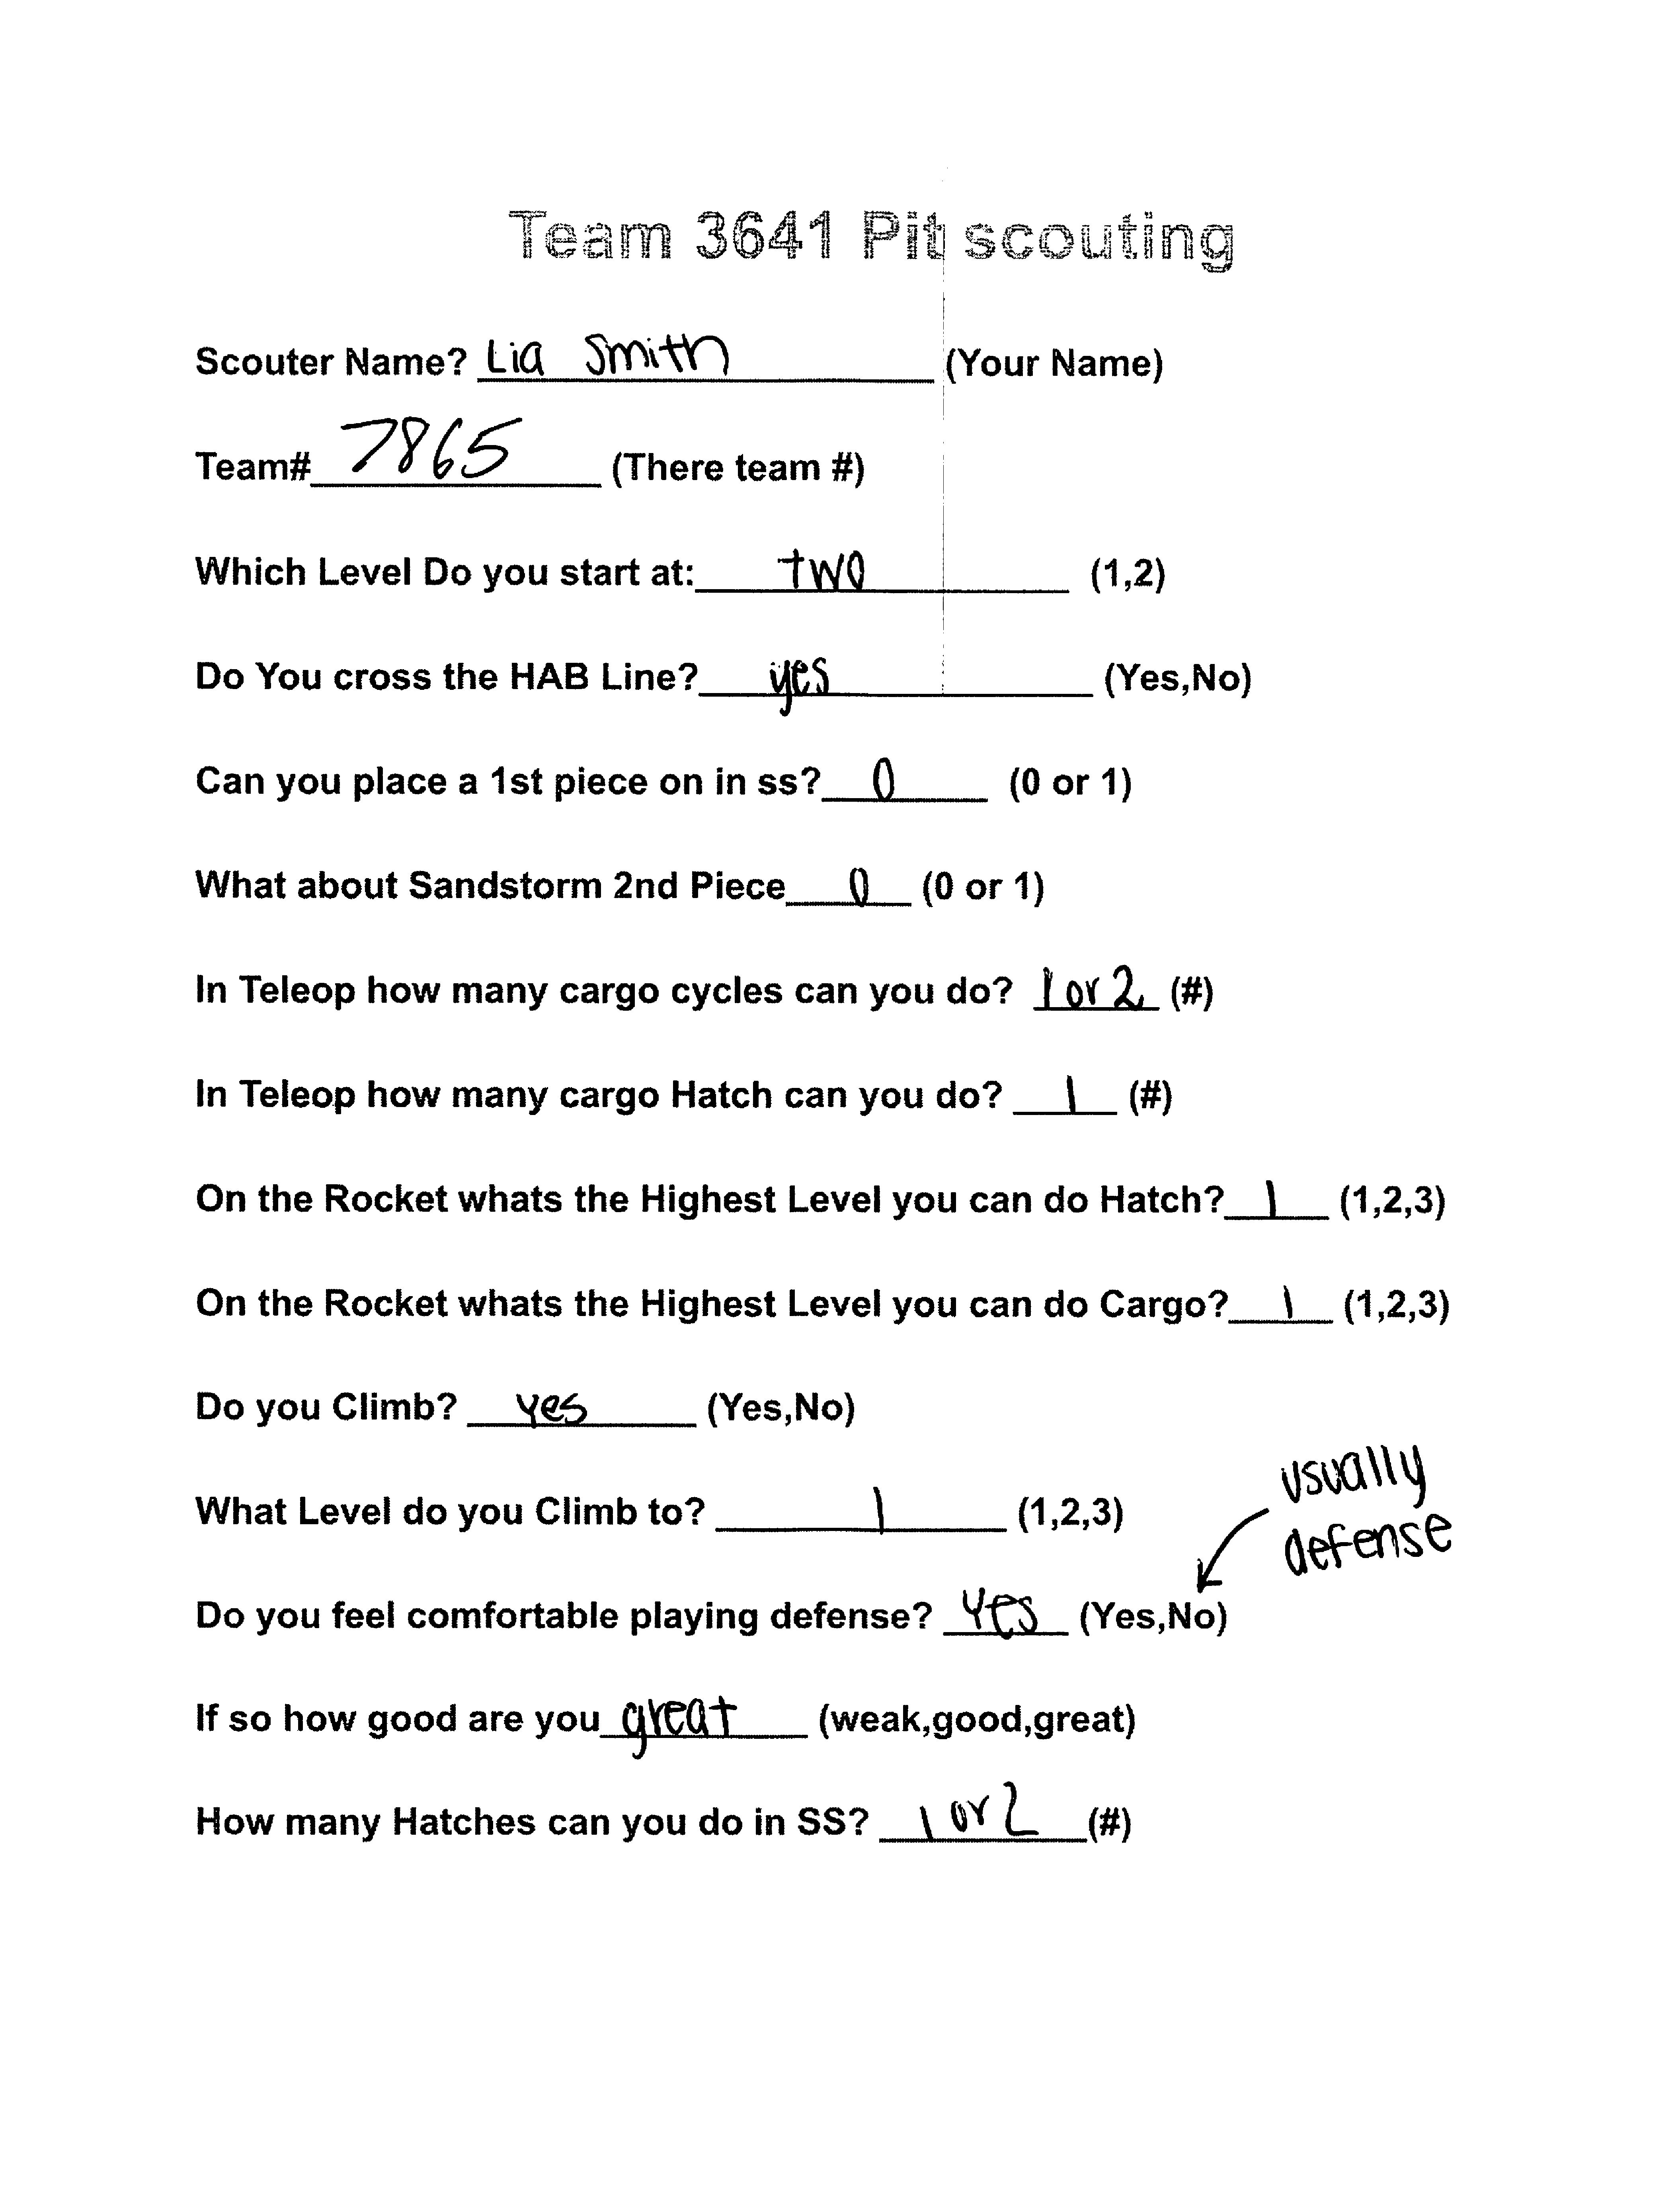 Team 3641 Pit scouting
Scouter Name? Lia Smith (Your Name)
Team# 7865 (There team #)
Which Level Do you start at: two (1,2)
Do You cross the HAB Line? yes (Yes,No)
Can you place a 1st piece on in ss? 0 (0 or 1)
What about Sandstorm 2nd Piece 0 (0 or 1)
In Teleop how many cargo cycles can you do? 1 or 2 (#)
In Teleop how many cargo Hatch can you do? 1 (#)
On the Rocket whats the Highest Level you can do Hatch? 1 (1,2,3)
On the Rocket whats the Highest Level you can do Cargo? 1 (1,2,3)
Do you Climb? yes (Yes,No)
What Level do you Climb to? 1 (1,2,3)
usually
defense
Do you feel comfortable playing defense? yes (Yes,No)
If so how good are you great (weak,good,great)
How many Hatches can you do in SS? 1 or 2 (#)